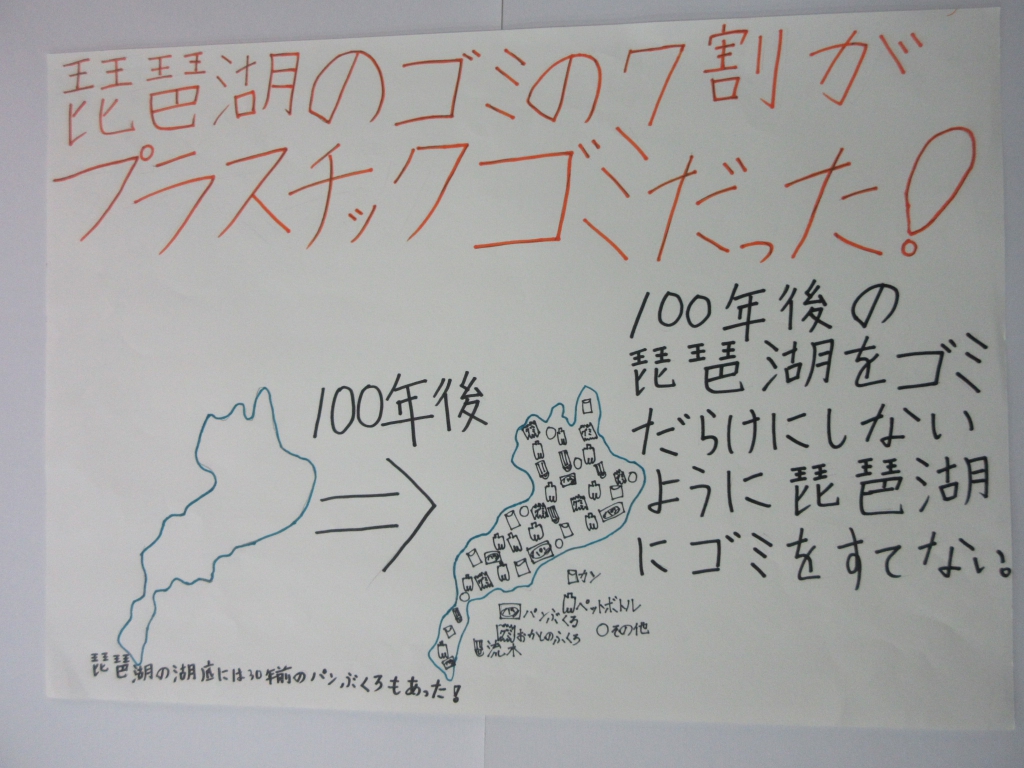 琵琶湖のゴミの7割が
プラスチックゴミだった!
100年後の
琵琶湖をゴミ
だらけにしない
ように琵琶湖
にゴミをすてない。
100年後
カン
ペットボトル
パンぶくろ
おかしのふくろ
その他
流木
琵琶湖の湖底には30年前のパンぶくろもあった!